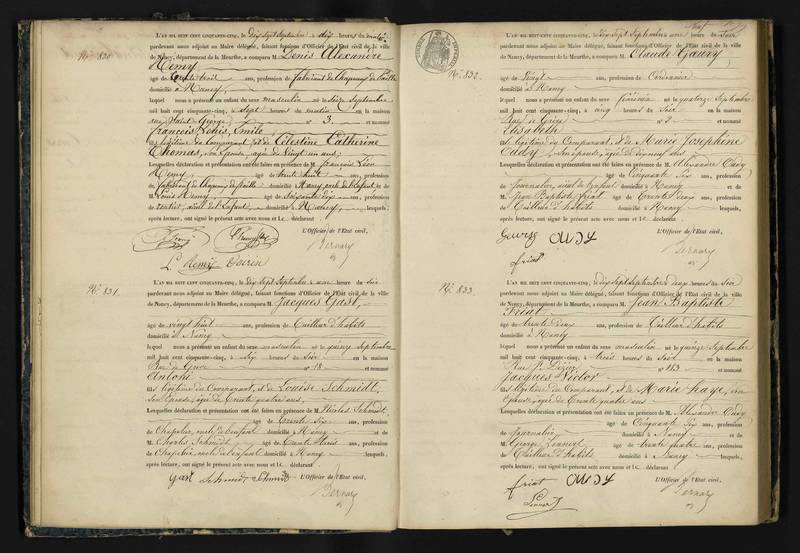 N°. 830.
L'AN MIL HUIT CENT CINQUANTE-CINQ, le dix Sept Septembre à dix heures du matin
pardevant nous adjoint au Maire délégué, faisant fonctions d'Officier de l'Etat civil de la ville
de Nancy, département de la Meurthe, a comparu M. Denis Alexandre
Remy
âgé de trente trois ans, profession de fabricant de Chapeaux de Paille
domicilié à Nancy,
lequel nous a présenté un enfant du sexe masculin né le Seize Septembre
mil huit cent cinquante-cinq, à Sept heures du matin en la maison
rue Saint Georges n° 3, et nommé
François Louis Emile
fils légitime du Comparant, et de Célestine Catherine
Thomas, son Epouse, âgée de Vingt un ans;
Lesquelles déclaration et présentation ont été faites en présence de M. François Léon
Remy, âgé de trente huit ans, profession
de fabricant de Chapeaux de paille domicilié à Nancy, oncle de l'enfant, et de
M. Louis Remy âgé de Soixante dix ans, profession
de rentier, aïeul de l'enfant, domicilié à Nancy, lesquels,
après lecture, ont signé le présent acte avec nous et le déclarant
L'Officier de l'Etat civil,
L. Remy
Bernard
N°. 831.
L'AN MIL HUIT CENT CINQUANTE-CINQ, le dix Sept Septembre à une heure du Soir
pardevant nous adjoint au Maire délégué, faisant fonctions d'Officier de l'Etat civil de la ville
de Nancy, département de la Meurthe, a comparu M. Jacques Gast,
âgé de vingt huit ans, profession de Tailleur d'habits
domicilié à Nancy
lequel nous a présenté un enfant du sexe masculin né le quinze Septembre
mil huit cent cinquante-cinq, à Six heures du Soir en la maison
Rue de Grève n° 18 et nommé
Antoine
fils légitime du Comparant, et de Louise Schmidt,
son Epouse, âgée de Trente quatre ans,
Lesquelles déclaration et présentation ont été faites en présence de M. Nicolas Schmidt,
âgé de trente Six ans, profession
de Chapelier, oncle de l'enfant domicilié à Nancy et de
M. Charles Schmidt âgé de trente trois ans, profession
de Chapelier, oncle de l'enfant domicilié à Nancy lesquels,
après lecture, ont signé le présent acte avec nous et le déclarant
L'Officier de l'Etat civil,
Gast Schmidt Schmidt
Bernard
N°. 832.
L'AN MIL HUIT CENT CINQUANTE-CINQ, le dix Sept Septembre à une heure du Soir
pardevant nous adjoint au Maire délégué, faisant fonctions d'Officier de l'Etat civil de la ville
de Nancy, département de la Meurthe, a comparu M. Claude
âgé de Vingt ans, profession de Cordonnier
domicilié à Nancy
lequel nous a présenté un enfant du sexe féminin né le quatorze Septembre
mil huit cent cinquante-cinq, à cinq heures du Soir en la maison
Rue de Grève n° 2 et nommé
Elisabeth
fille légitime du Comparant, et de Marie Joséphine
Cudy, son épouse, âgée de dix neuf ans
Lesquelles déclaration et présentation ont été faites en présence de M. Alexandre Cudy
âgé de Cinquante Six ans, profession
de Journalier, aïeul de l'enfant domicilié à Nancy et de
M. Jean Baptiste Friat âgé de trente deux ans, profession
de Tailleur d'habits domicilié à Nancy lesquels,
après lecture, ont signé le présent acte avec nous et le déclarant
L'Officier de l'Etat civil,
CUDY
friat
Bernard
N°. 833
L'AN MIL HUIT CENT CINQUANTE-CINQ, le dix Sept Septembre à deux heures du Soir
pardevant nous adjoint au Maire délégué, faisant fonctions d'Officier de l'Etat civil de la ville
de Nancy, département de la Meurthe, a comparu M. Jean Baptiste
Friat
âgé de trente deux ans, profession de Tailleur d'habits
domicilié à Nancy
lequel nous a présenté un enfant du sexe masculin né le quinze Septembre
mil huit cent cinquante-cinq, à trois heures du Soir en la maison
Rue St Dizier n° 113 et nommé
Jacques Victor
fils légitime du Comparant, et de Marie haye, son
épouse, âgée de trente quatre ans
Lesquelles déclaration et présentation ont été faites en présence de M. Alexandre Cudy
âgé de Cinquante Six ans, profession
de Journalier domicilié à Nancy et de
M. George âgé de trente quatre ans, profession
de Tailleur d'habits domicilié à Nancy lesquels,
après lecture, ont signé le présent acte avec nous et le déclarant
L'Officier de l'Etat civil,
friat CUDY
Bernard